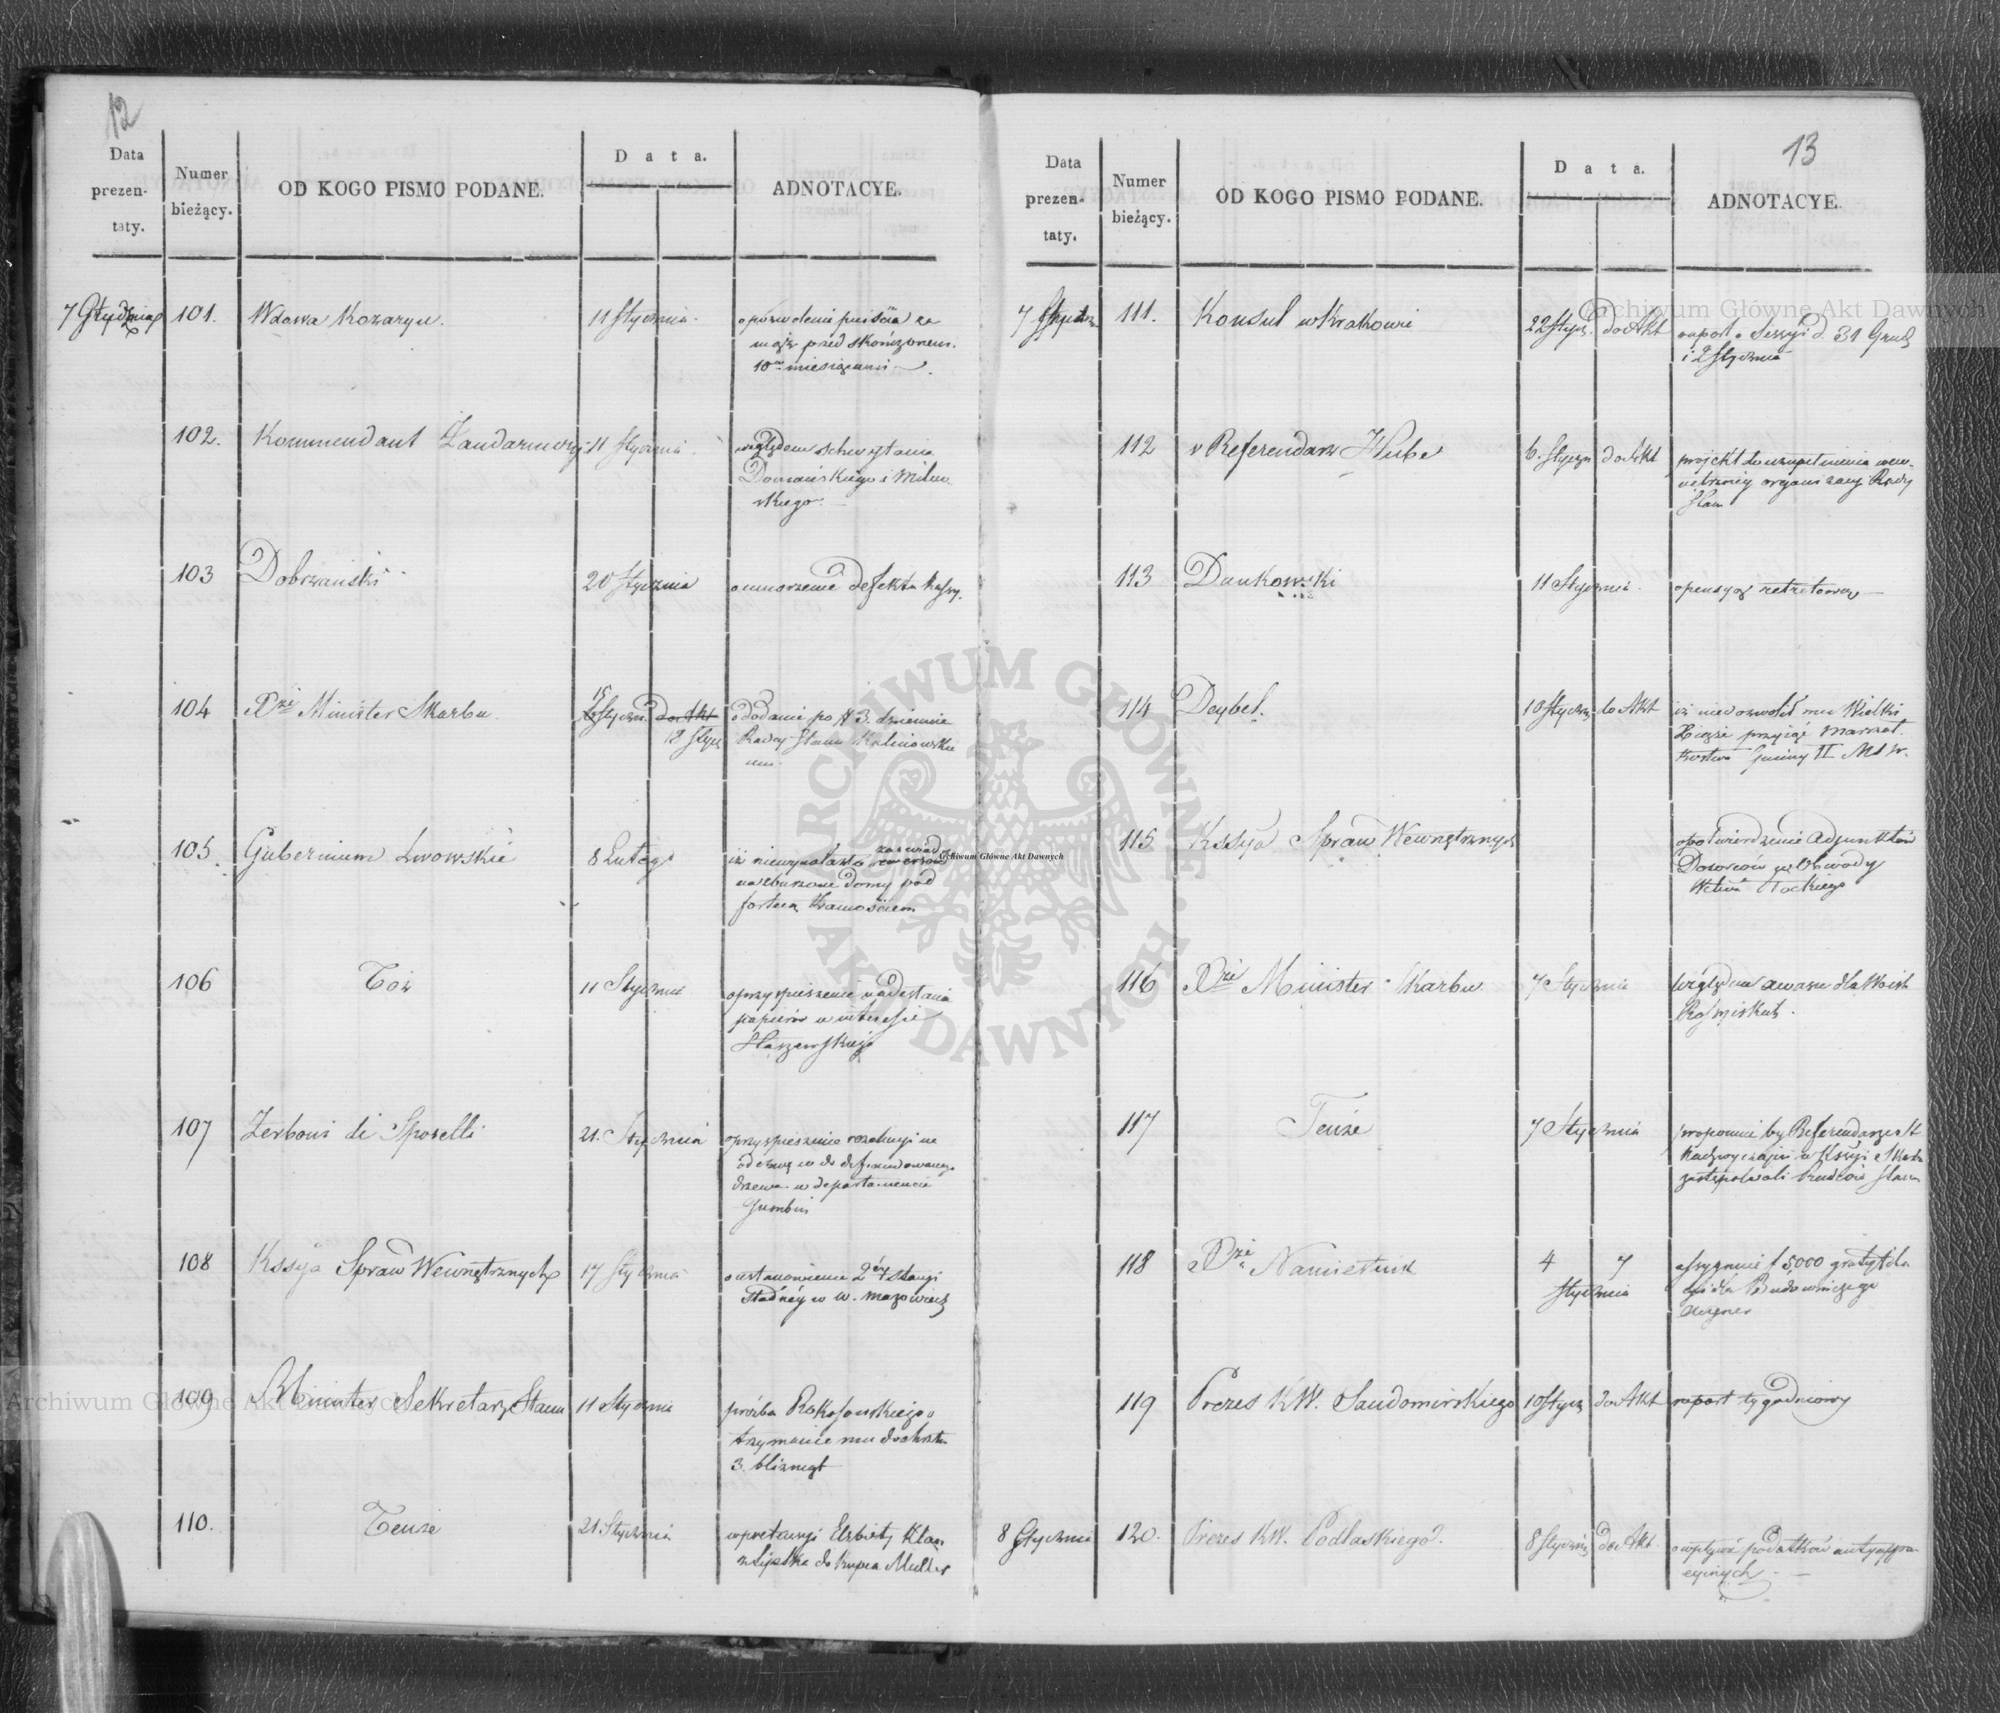 12
Data
prezen-
taty.
Numer
bieżący.
OD KOGO PISMO PODANE.
Data.
ADNOTACYE.
7 Stycznia 101. Wdowa Kozaryn. 11 Stycznia.
o pozwolenie pójścia za
mąż przed skończonemi
10 miesiącami
102. Kommendant Żandarmeryi 11 Stycznia.
względem schwytania
Domańskiego i Milew
skiego.
103 Dobrzański 20 Stycznia o umorzenie defektu kassy.
104 Xże Minister Skarbu 15 Stycz. do Akt
18 Stycz
o dodanie po # 3. dziennie
Radcy Stanu Kalinowskie
mu.
105. Gubernium Lwowskie 8 Lutego
iż niewynalazło
na zburzone domy pod
fortecą Zamościem
106 Toż 11 Stycznia
o przyspieszenie nadesłania
papierów w interessie
Staszewskiego
107 Zerboni di Sposetti 21. Stycznia
o przyspieszenie rezolucyi na
odezwę w do defraudowanego
drzewa w departamencie
Gumbin
108 Kssya Spraw Wewnętrznych 17 Stycznia
o ustanowienie 2éy Stacyi
Stadnéy w W. Mazowieck
109 Minister Sekretarz Stanu 11 Stycznia
prośba Rokossowskiego o
trzymanie mu do chrztu
3. bliźniąt
110. Tenże 21. Stycznia
w pretensyi Elżbiety Klaa
z Lipska do kupca Muller
13
Data
prezen-
taty.
Numer
bieżący.
OD KOGO PISMO PODANE.
Data.
ADNOTACYE.
7 Stycz 111. Konsul w Krakowie 22 Stycz. do Akt
raport o Sessyi d. 31 Grud
i 2 Stycznia
112 Referendarz Hube 6. Stycz do Akt
projekt do uzupełnienia wew-
nętrznéy organizacyi Rady
Stanu
113 Dankowski 11 Stycznia. o pensyą retretową
114 Deybel. 10 Stycz do Akt
iż niedozwolił mu Wielki
Xiąże przyiąć Marszał.
kostwa Gminy II M. W.
115 Kssya Spraw Wewnętrznych
o potwierdzenie Adjunktów
Dozorców na Obwody
Wdztwa Płockiego
116 Xże Minister Skarbu 7 Stycznia
względem awansu dla Woisk
Rossyiskich.
117 Tenże 7 Stycznia
proponuie by Referendarze St
Nadzwyczajni w Kssyi Skarbu
zastępowali Radców Stanu
118 Xże Namiestnik 4 7
Stycznia
assygnuie f 5000 gratyfika
cyi dla Budowniczego
Aigner
119 Prezes KW. Sandomirskiego 10 Stycz do Akt raport tygodniowy
8 Stycznia 120. Prezes KW. Podlaskiego. 8 Stycznia do Akt.
o wpływie podatków antycypa-
cyinych.
ARCHIWUM GŁÓWNE AKT DAWNYCH
Archiwum Główne Akt Dawnych
Archiwum Główne Akt Dawnych
Archiwum Główne Akt Dawnych